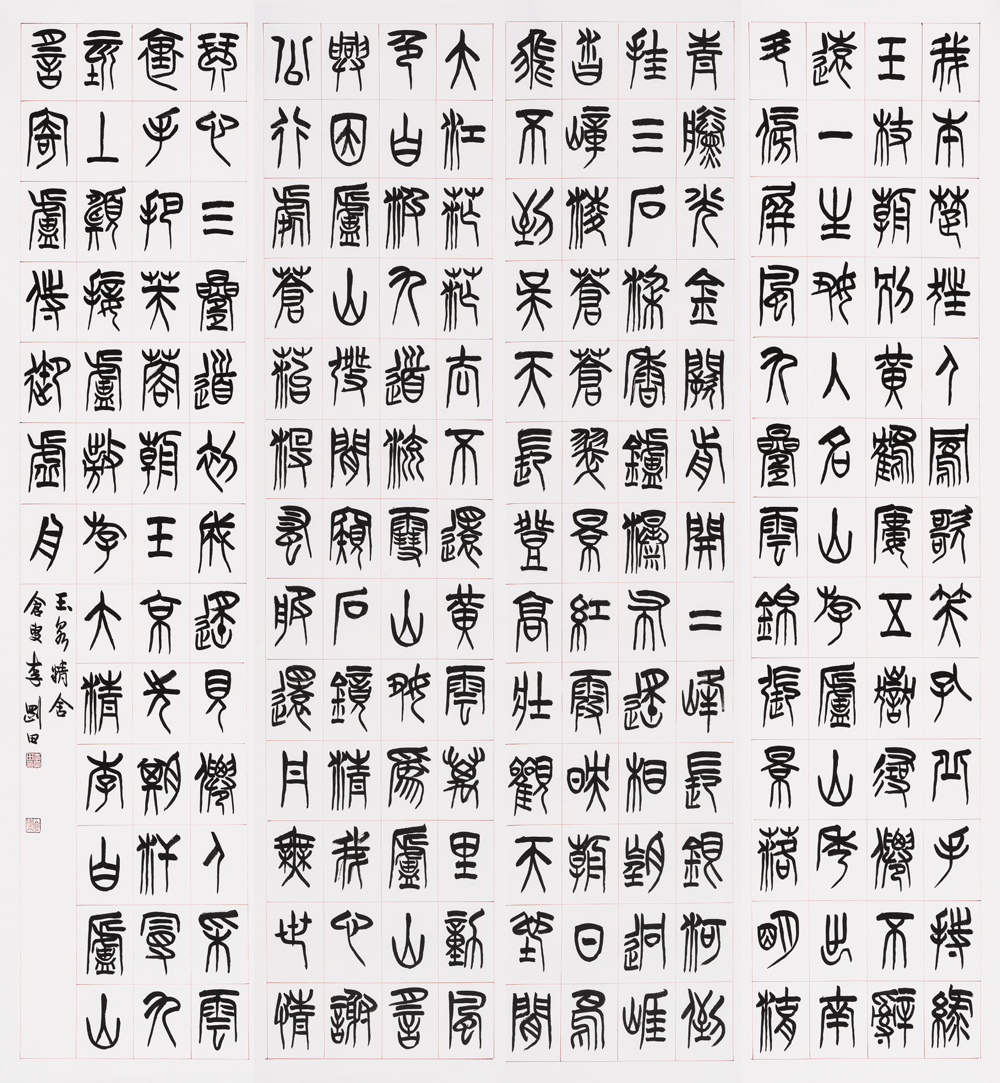 我本楚狂人鳳歌笑孔丘手持綠
玉杖朝別黃鶴樓五嶽尋僊不辭
遠一生好入名山游廬山秀出南
斗傍屏風九疊雲錦張景落明湖
青黛光金闕前開二峰長銀河倒
挂三石梁香鑪瀑布遙相望迴崖
沓嶂淩蒼蒼翠景紅霞映朝日鳥
飛不到吳天長登高壯觀天地間
大江茫茫去不還黃雲萬里動風
色白波九道流雪山好爲廬山謠
興因廬山發閒窺石鏡清我心謝
公行處蒼苔沒早服還丹無世情
琴心三疊道初成遙見僊人采雲
裏手把芙蓉朝玉京先期汗漫九
垓上願接盧敖游太清李白廬山
謠寄盧侍御虛舟
玉泉精舍
倉叟李剛田